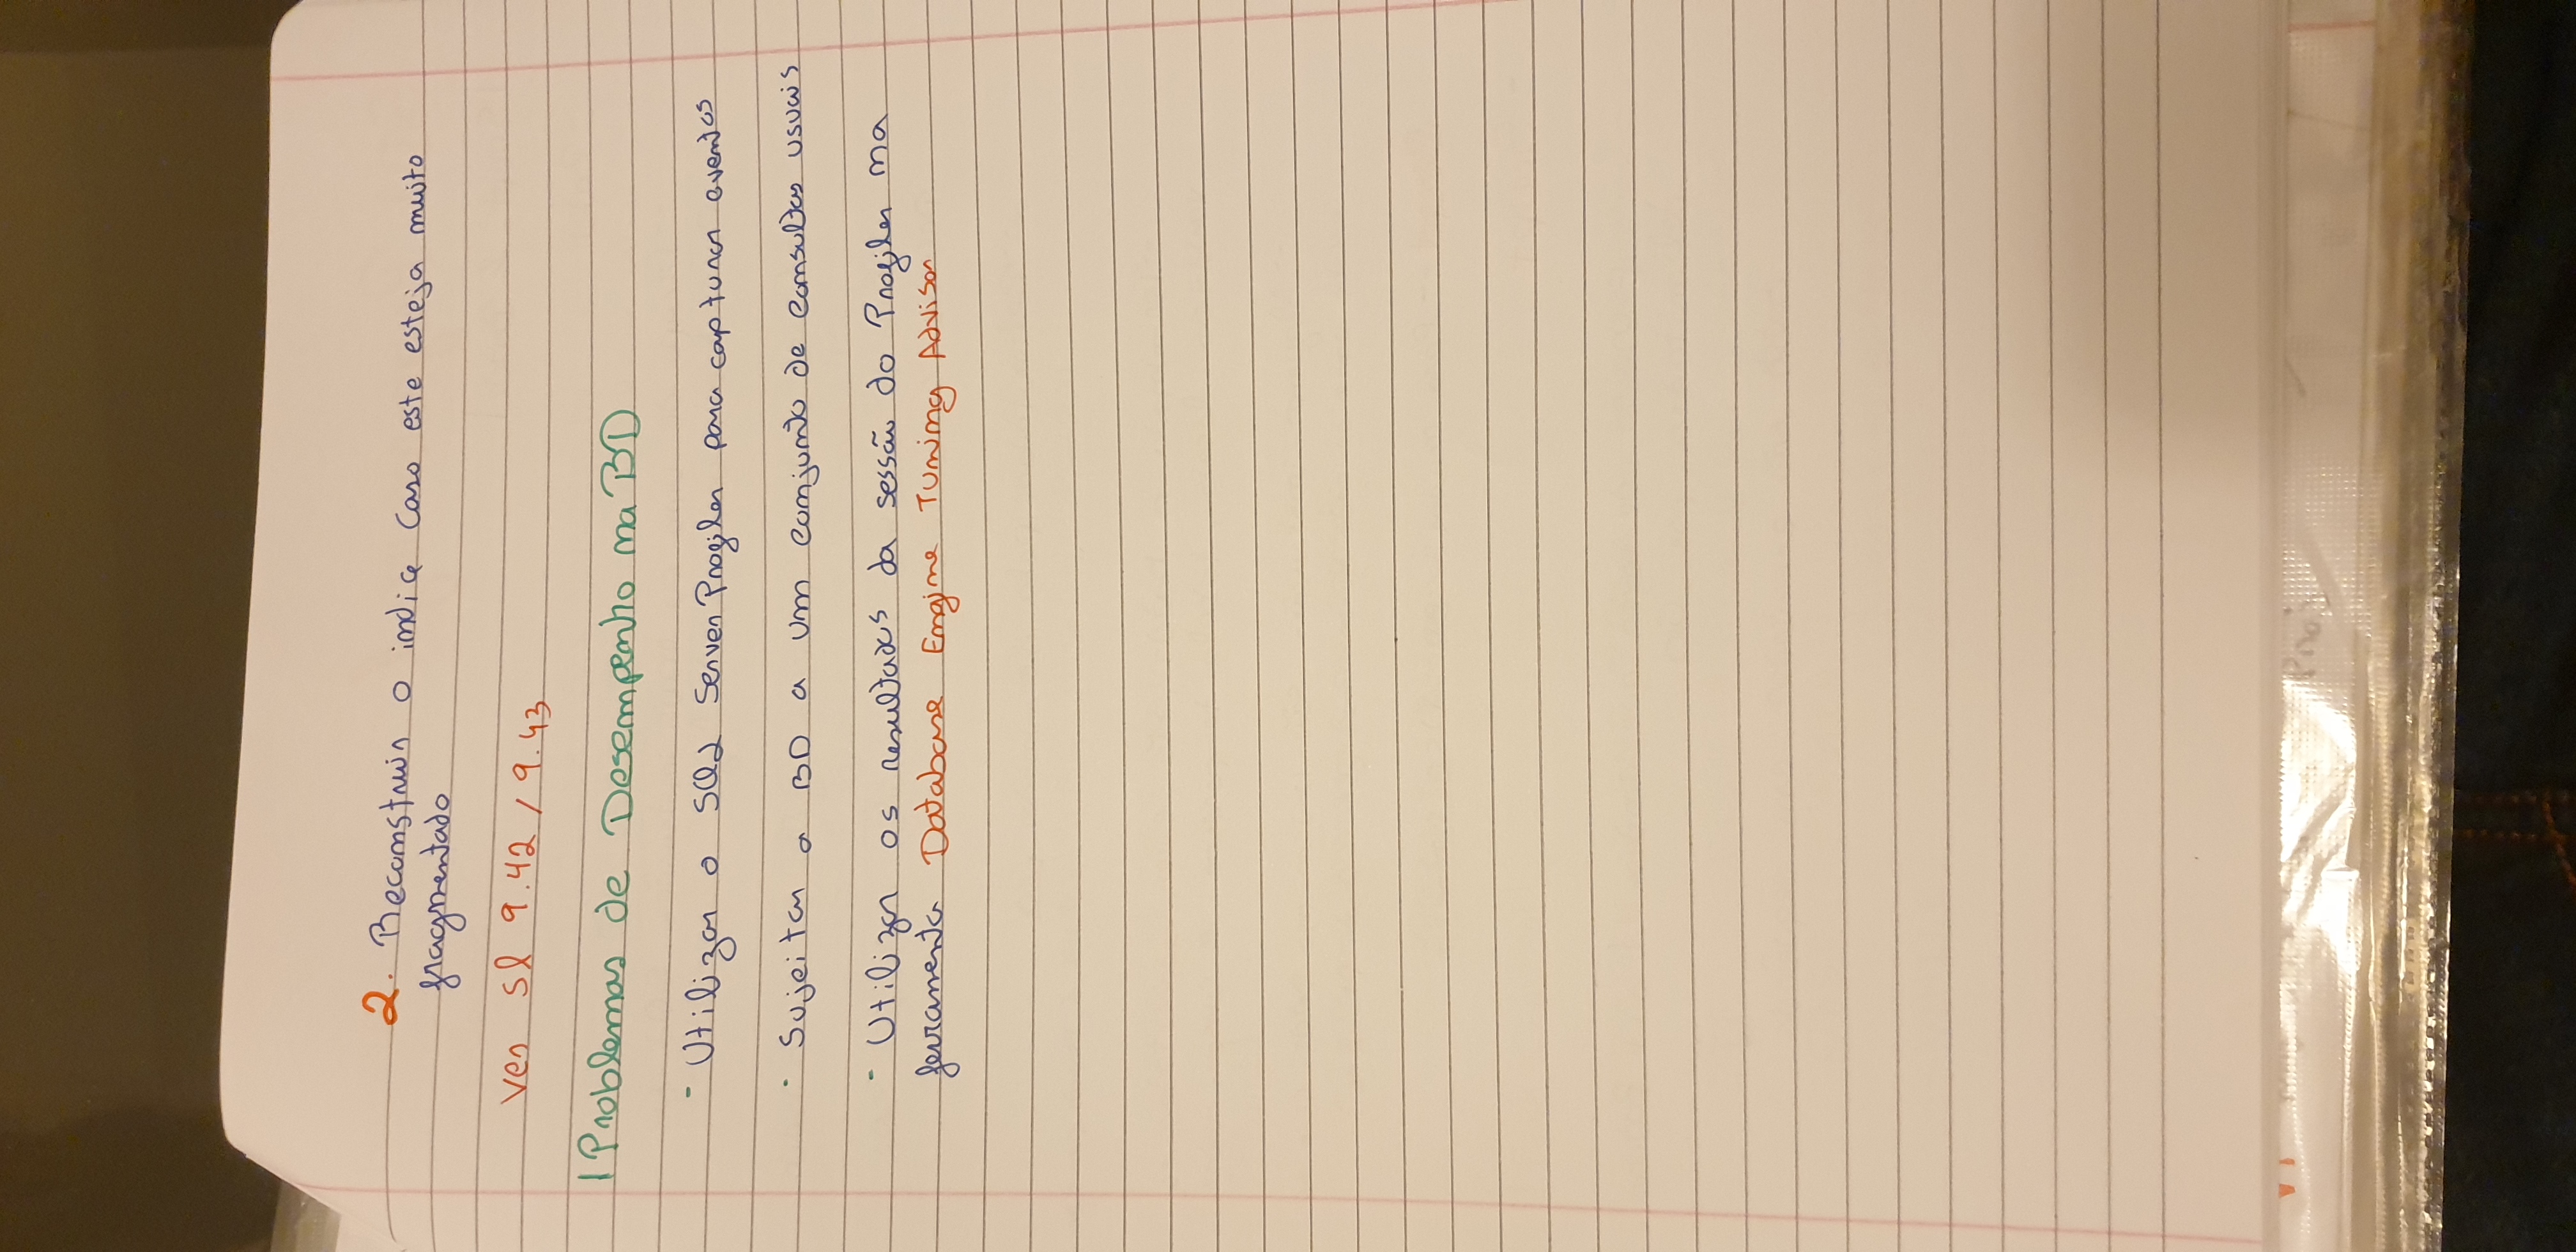 2. Reconstruir o indice caso este esteja muito
fragmentado
Ver sl 9.42 / 9.43
Problemas de Desempenho na BD
- Utilizar o SQL Server Profiler para capturar eventos
- Sujeitar a BD a um conjunto de consultas usuais
- Utilizar os resultados da sessão do Profiler na
ferramenta Database Engine Tuning Advisor